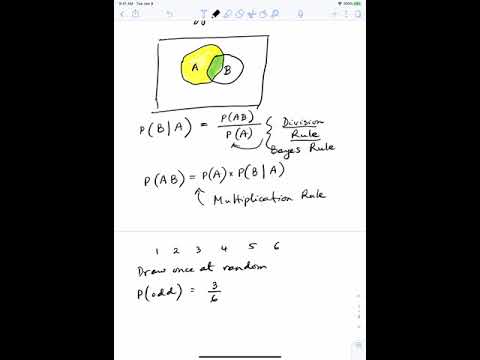 9:41 AM Tue Jan 9
A
B
P(B|A) = P(AB) / P(A) { Division Rule
Bayes Rule
P(AB) = P(A) × P(B|A)
Multiplication Rule
1 2 3 4 5 6
Draw once at random
P(odd) = 3/6